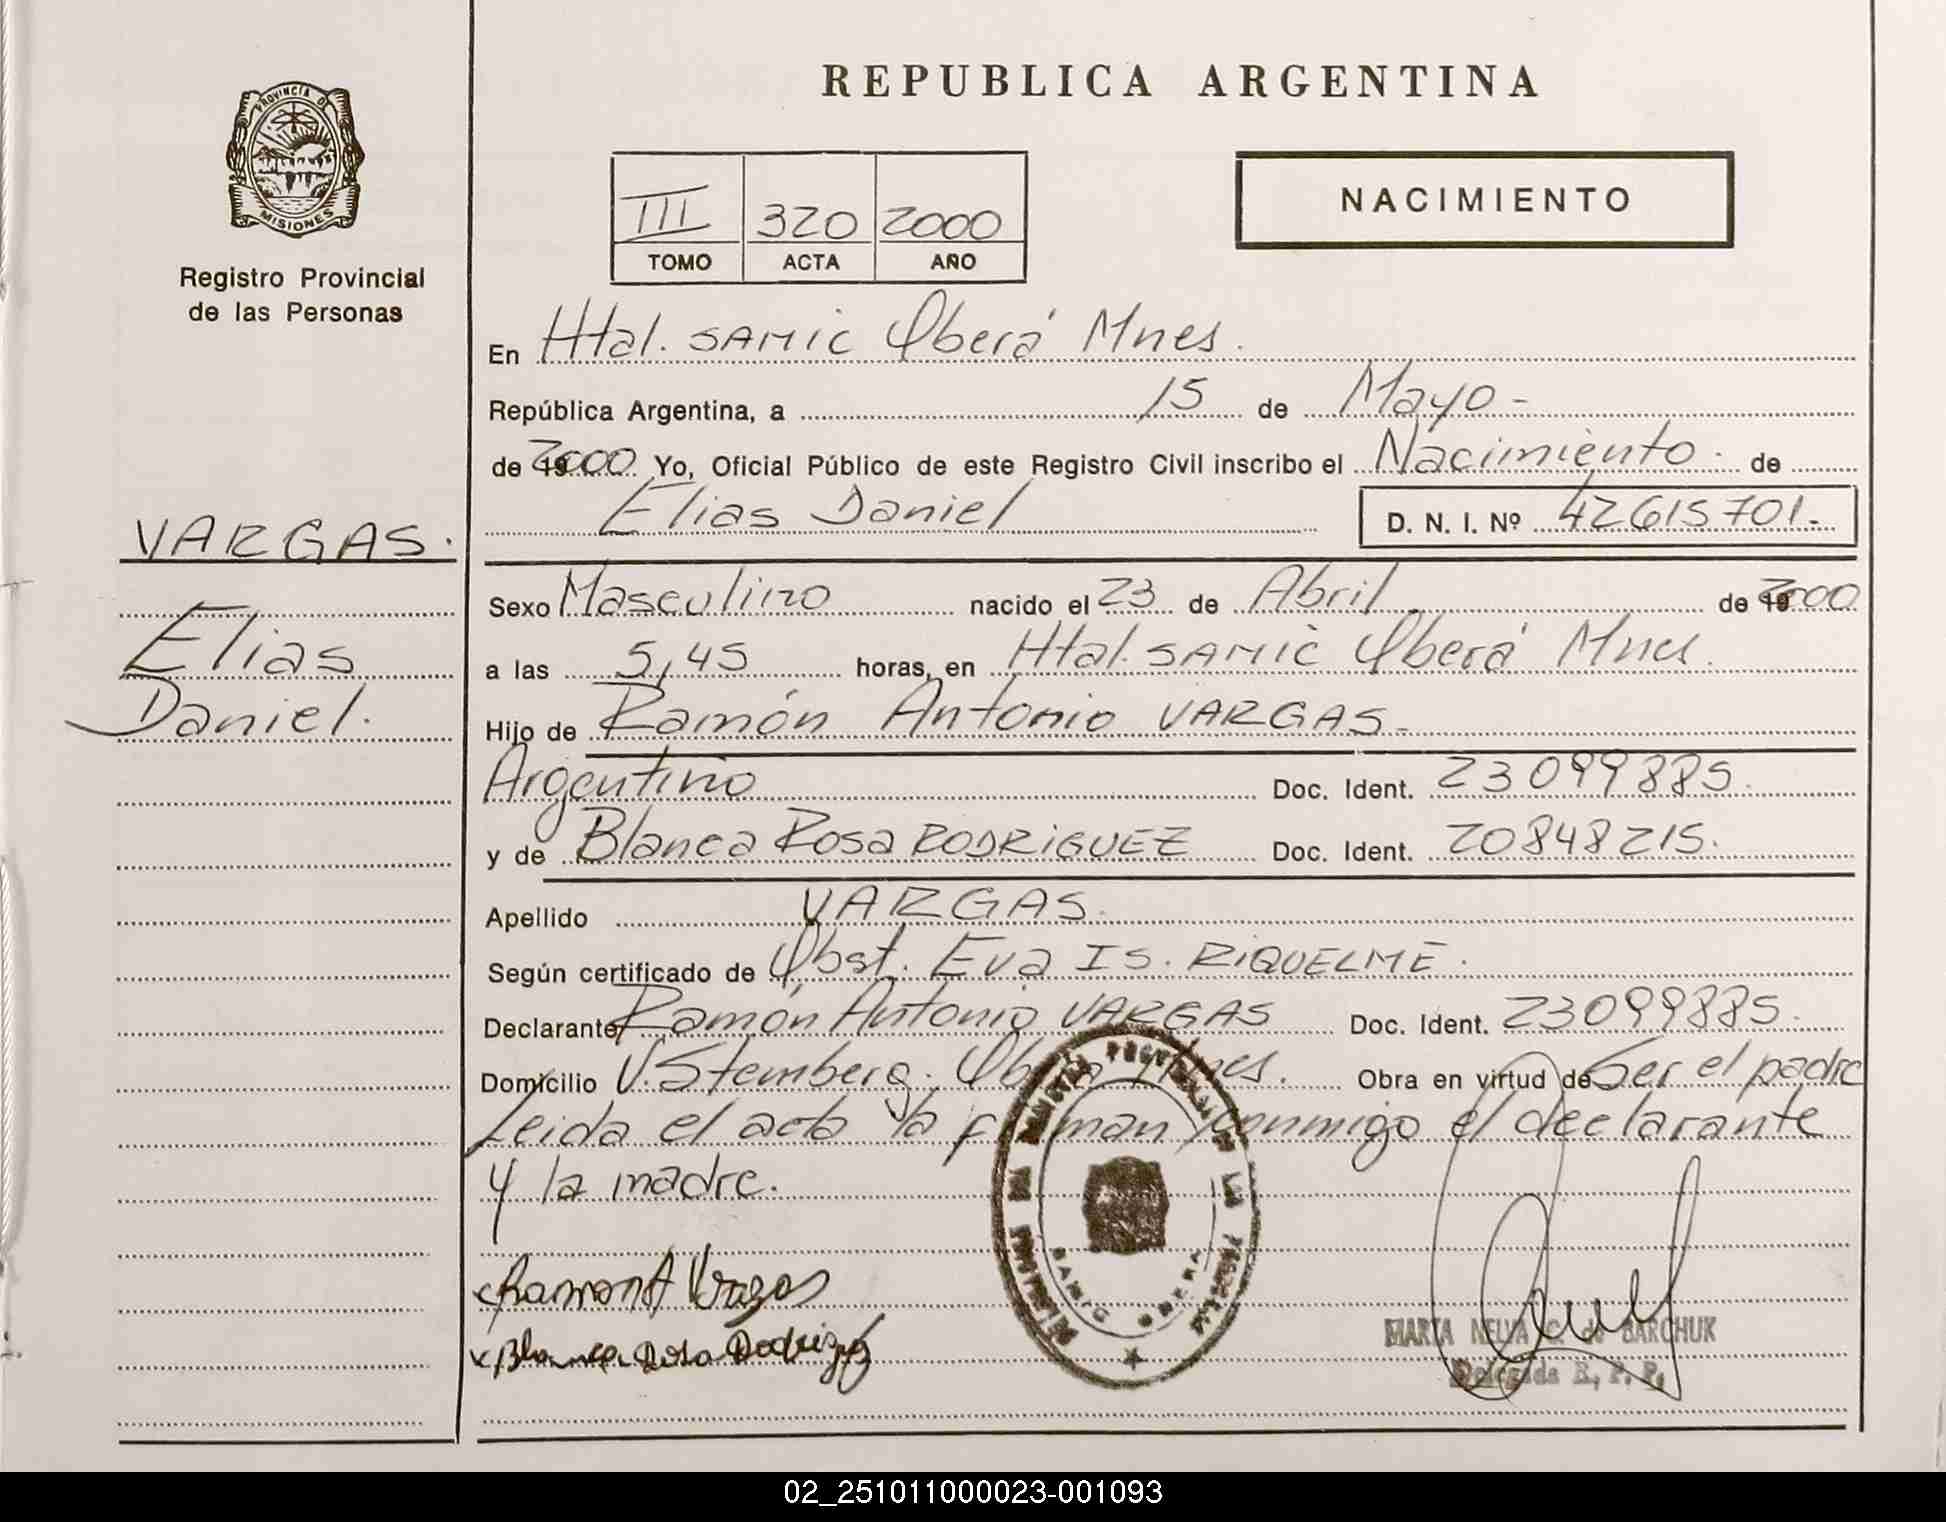 REPUBLICA ARGENTINA
PROVINCIA DE
MISIONES
Registro Provincial
de las Personas
III 320 2000
TOMO ACTA AÑO
NACIMIENTO
En Htal. SAMIC Oberá Mnes.
República Argentina, a 15 de Mayo -
de 2000 Yo, Oficial Público de este Registro Civil inscribo el Nacimiento. de
Elias Daniel D. N. I. Nº 42615701.-
VARGAS.
Elias
Daniel.
Sexo Masculino nacido el 23 de Abril de 2000
a las 5,45 horas, en Htal. SAMIC Oberá Mnes.
Hijo de Ramón Antonio VARGAS -
Argentino Doc. Ident. 23099885.
y de Blanca Rosa RODRIGUEZ Doc. Ident. 20848215.
Apellido VARGAS.
Según certificado de Obst. Eva Is. RIQUELME.
Declarante Ramón Antonio VARGAS Doc. Ident. 23099885.
Domicilio V. Stemberg. Oberá Mnes. Obra en virtud de Ser el padre
Leida el acta la firman conmigo el declarante
y la madre.
Ramon A Vargas
Blanca Rosa Rodriguez
SAMIC OBERA
MARTA NELVA C. de BARCHUK
Delegada R. P. P.
02_251011000023-001093